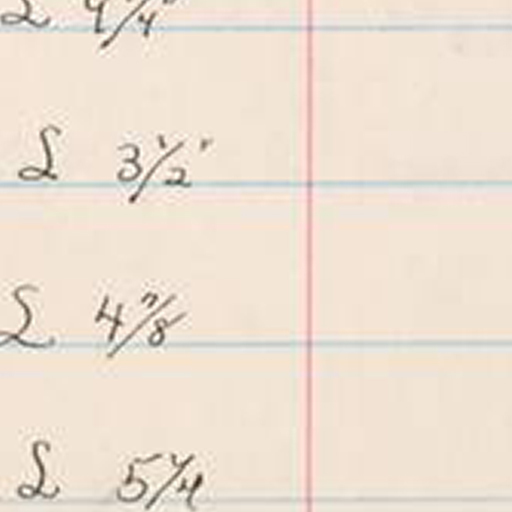 L 4 1/4"
L 3 1/2"
L 4 7/8
L 5 1/4